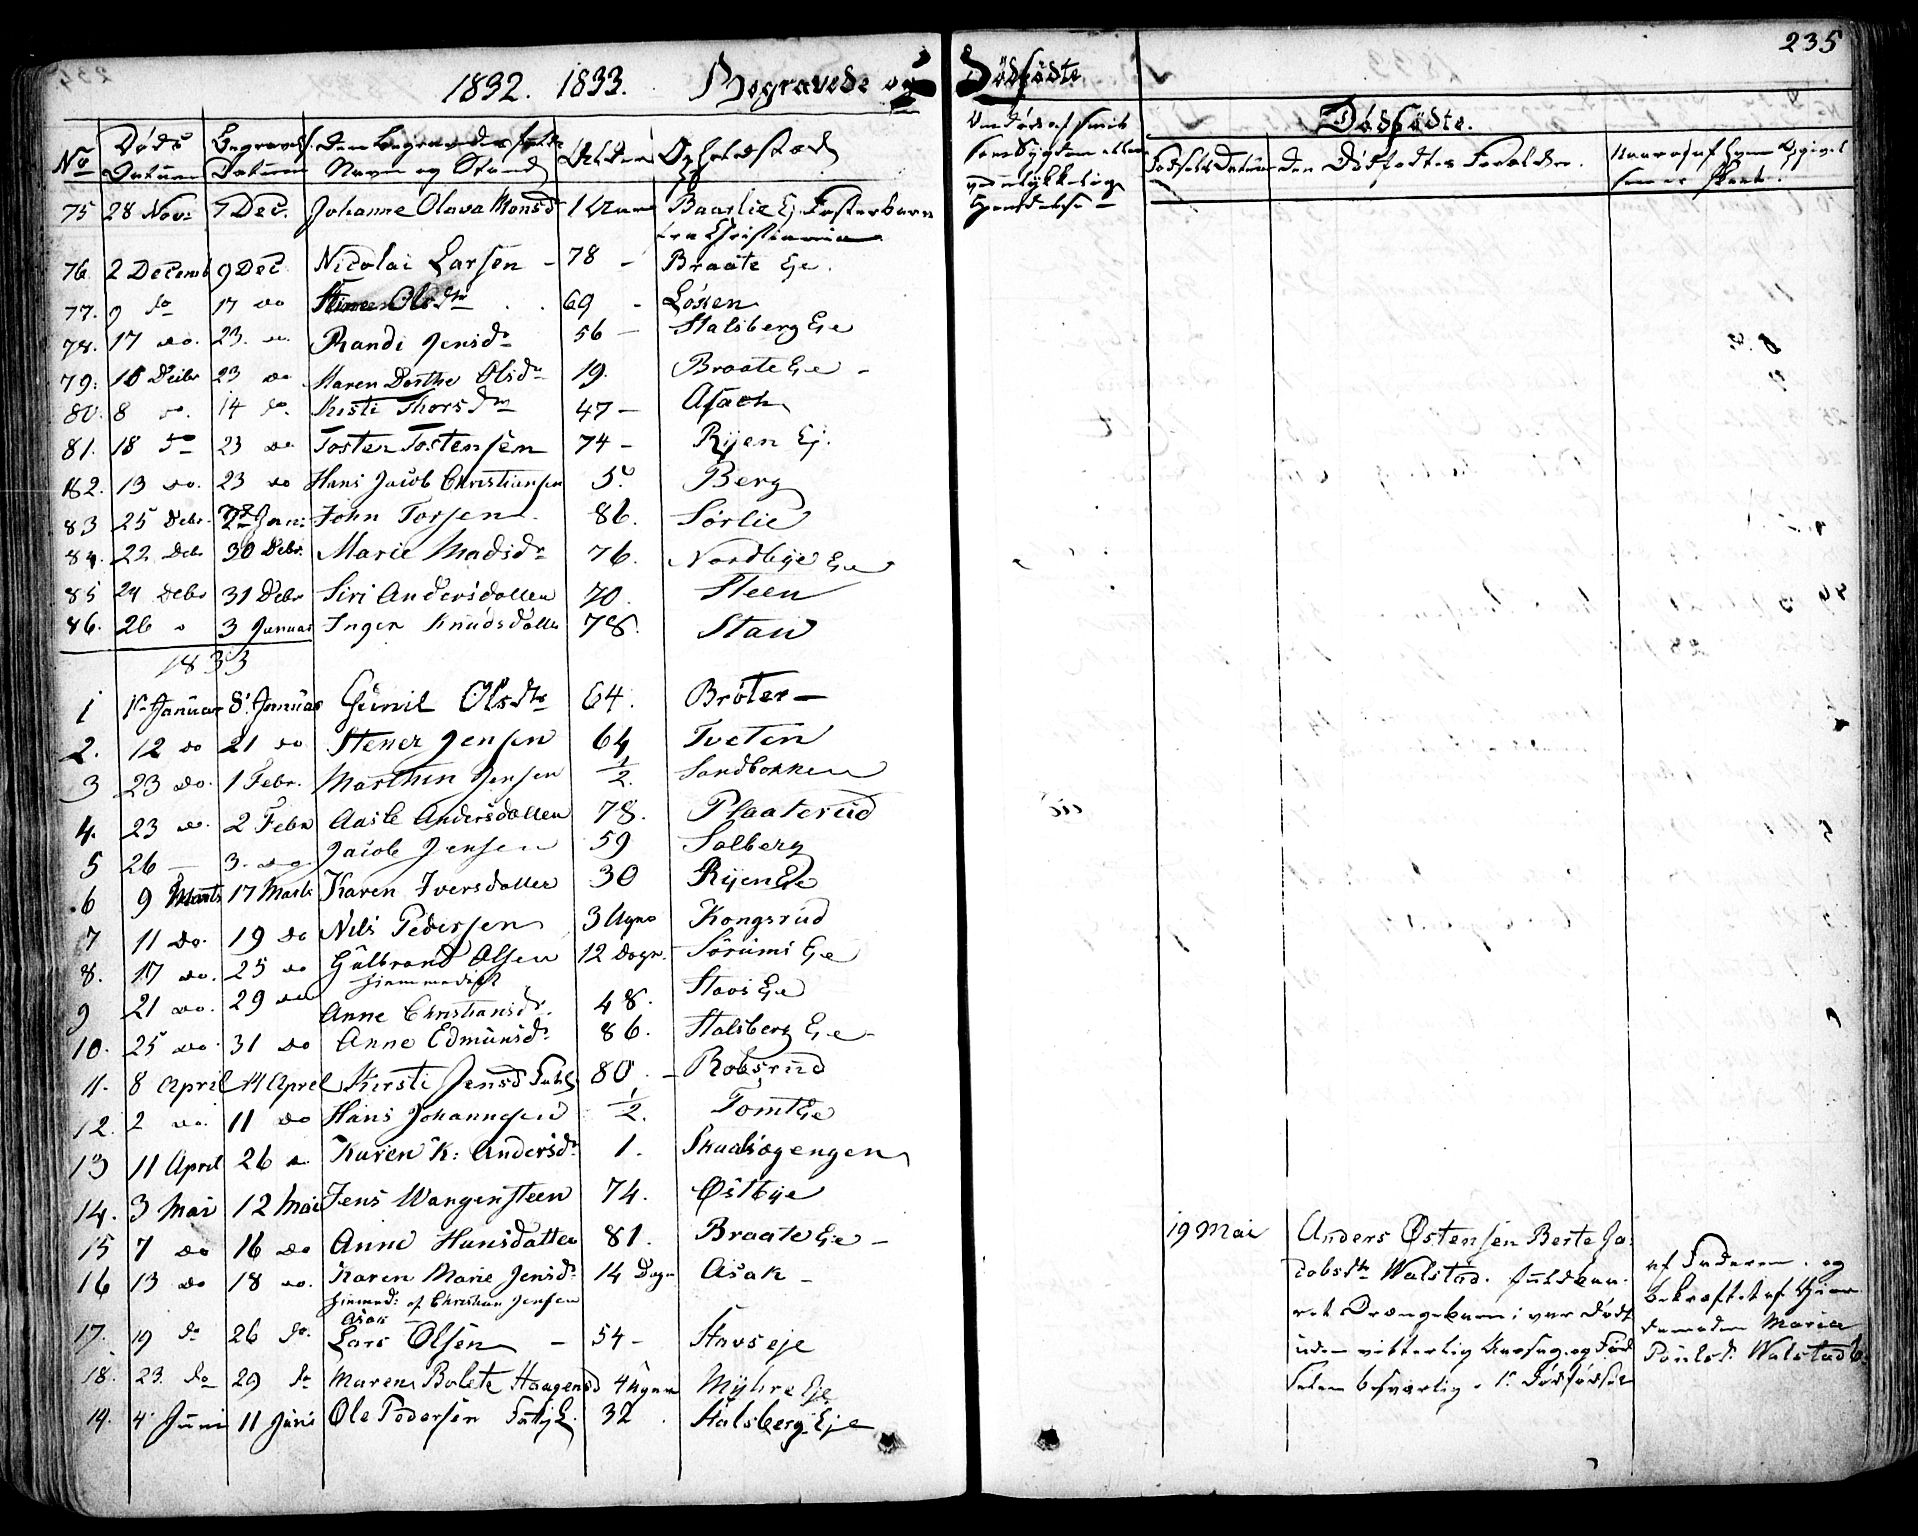 235
1832. 1833. Begravede og Dødfødte
No Døds Datum Begravels. Datum Den Begravedes fulde Navn og Stand Alder Opholdsted
75 28 Nov: 7 Dec. Johanne Olava Monsd 1 Aar Baarlie Ej. Fosterbarn
fra Christiania
76. 2 Decemb 9 Dec Nicolai Larsen - 78 - Braate Eje.
77. 9 do 17 do Olsdtr 69 - Löken
78. 17 do. 23. do. Randi Jensdr 56 - Stalsberg Eje
79. 16 Decbr 23 do Maren Dorthe Olsdr 19. Braate Eje -
80. 8 do. 14 do. Kisti Thorsdtr 47 - Asach
81. 18 do 23 do Tosten Tostensen 74 - Ryen Ej.
82. 13 do. 23 do Hans Jacob Christiansen 5. Berg
83 25 Debr. 2 Jan: John Torsen 86. Sörlie
84. 22 Debr 30 Debr. Marie Madsdr 76. Nordbye Eje
85 24 Debr 31 Debr Siri Andersdatter 70. Steen
86. 26 " 3 Januar Inger Knudsdatter 78. Stav
1833
1 1. Januar 8. Januar Gunil Olsdtr 64. Bröter -
2. 12 do 21 do Stener Jensen 64 Tveten
3 23 do. 1 Febr. Marthin Jensen 1/2. Sandbokken
4. 23 do. 2 Febr Aase Andersdatter 78. Plaaterud
5 26 - 3. do Jacob Jensen 59 Solberg
6 9 Marts 17 Marts Karen Iversdatter 30 Ryen Eje
7 11 do. 19 do Nils Pedersen 3 Ugne Kongsrud
8. 17 do. 25 do Gulbrand Olsen 12 Dage. Sörums Eje
hjemmedöbt
9 21 do. 29 do Anne Christiansdr. 48. Stavs Eje
10. 25 do. 31 do Anne Edmunsdr 86. Stalsberg Eje -
11. 8 April 14 April Kirsti Jensd Fattig 80. - Robsrud
12. 2 do. 11 do Hans Johannesen 1/2. Tomt Eje
13 11 April 26 do Karen K: Andersdr 1. Skadsogengen
14. 3 Mai 12 Mai Jens Wangensteen 74. Østbye
15 7 do 16 do Anne Hansdatter 81. Braate Eje -
16 13 do 18 do. Karen Marie Jensdr 14 Dage Asak -
hjemmed: af Christian Jensen
Asak
17. 19 do 26 do. Lars Olsen - 54 - Stavs eje
18. 23. do 29 do Maren Bolete Haagensd 4 Ugne Myhre Eje
19. 4. Juni 11 Juni Ole Pedersen Fattig. 32. Stalsberg Eje
Om Död af smitsom Sygdom eller ved ulykkelig Hændelse
Dødfødte.
Födsels Datum Den Dödfødtes Forældre. Hvoraf Opgivelsen er skeet.
19 Mai Anders Østensen Berte Ja-
cobsdtr Walstad. fuldbaa-
ret Drængebarn; var død
uden vitterlig Aarsag, og Föd-
selen besværlig. 1. Dødfødsel
af Faderen. og
bekræftet af Gjor-
demoder Maria
Poulsd. Walstad